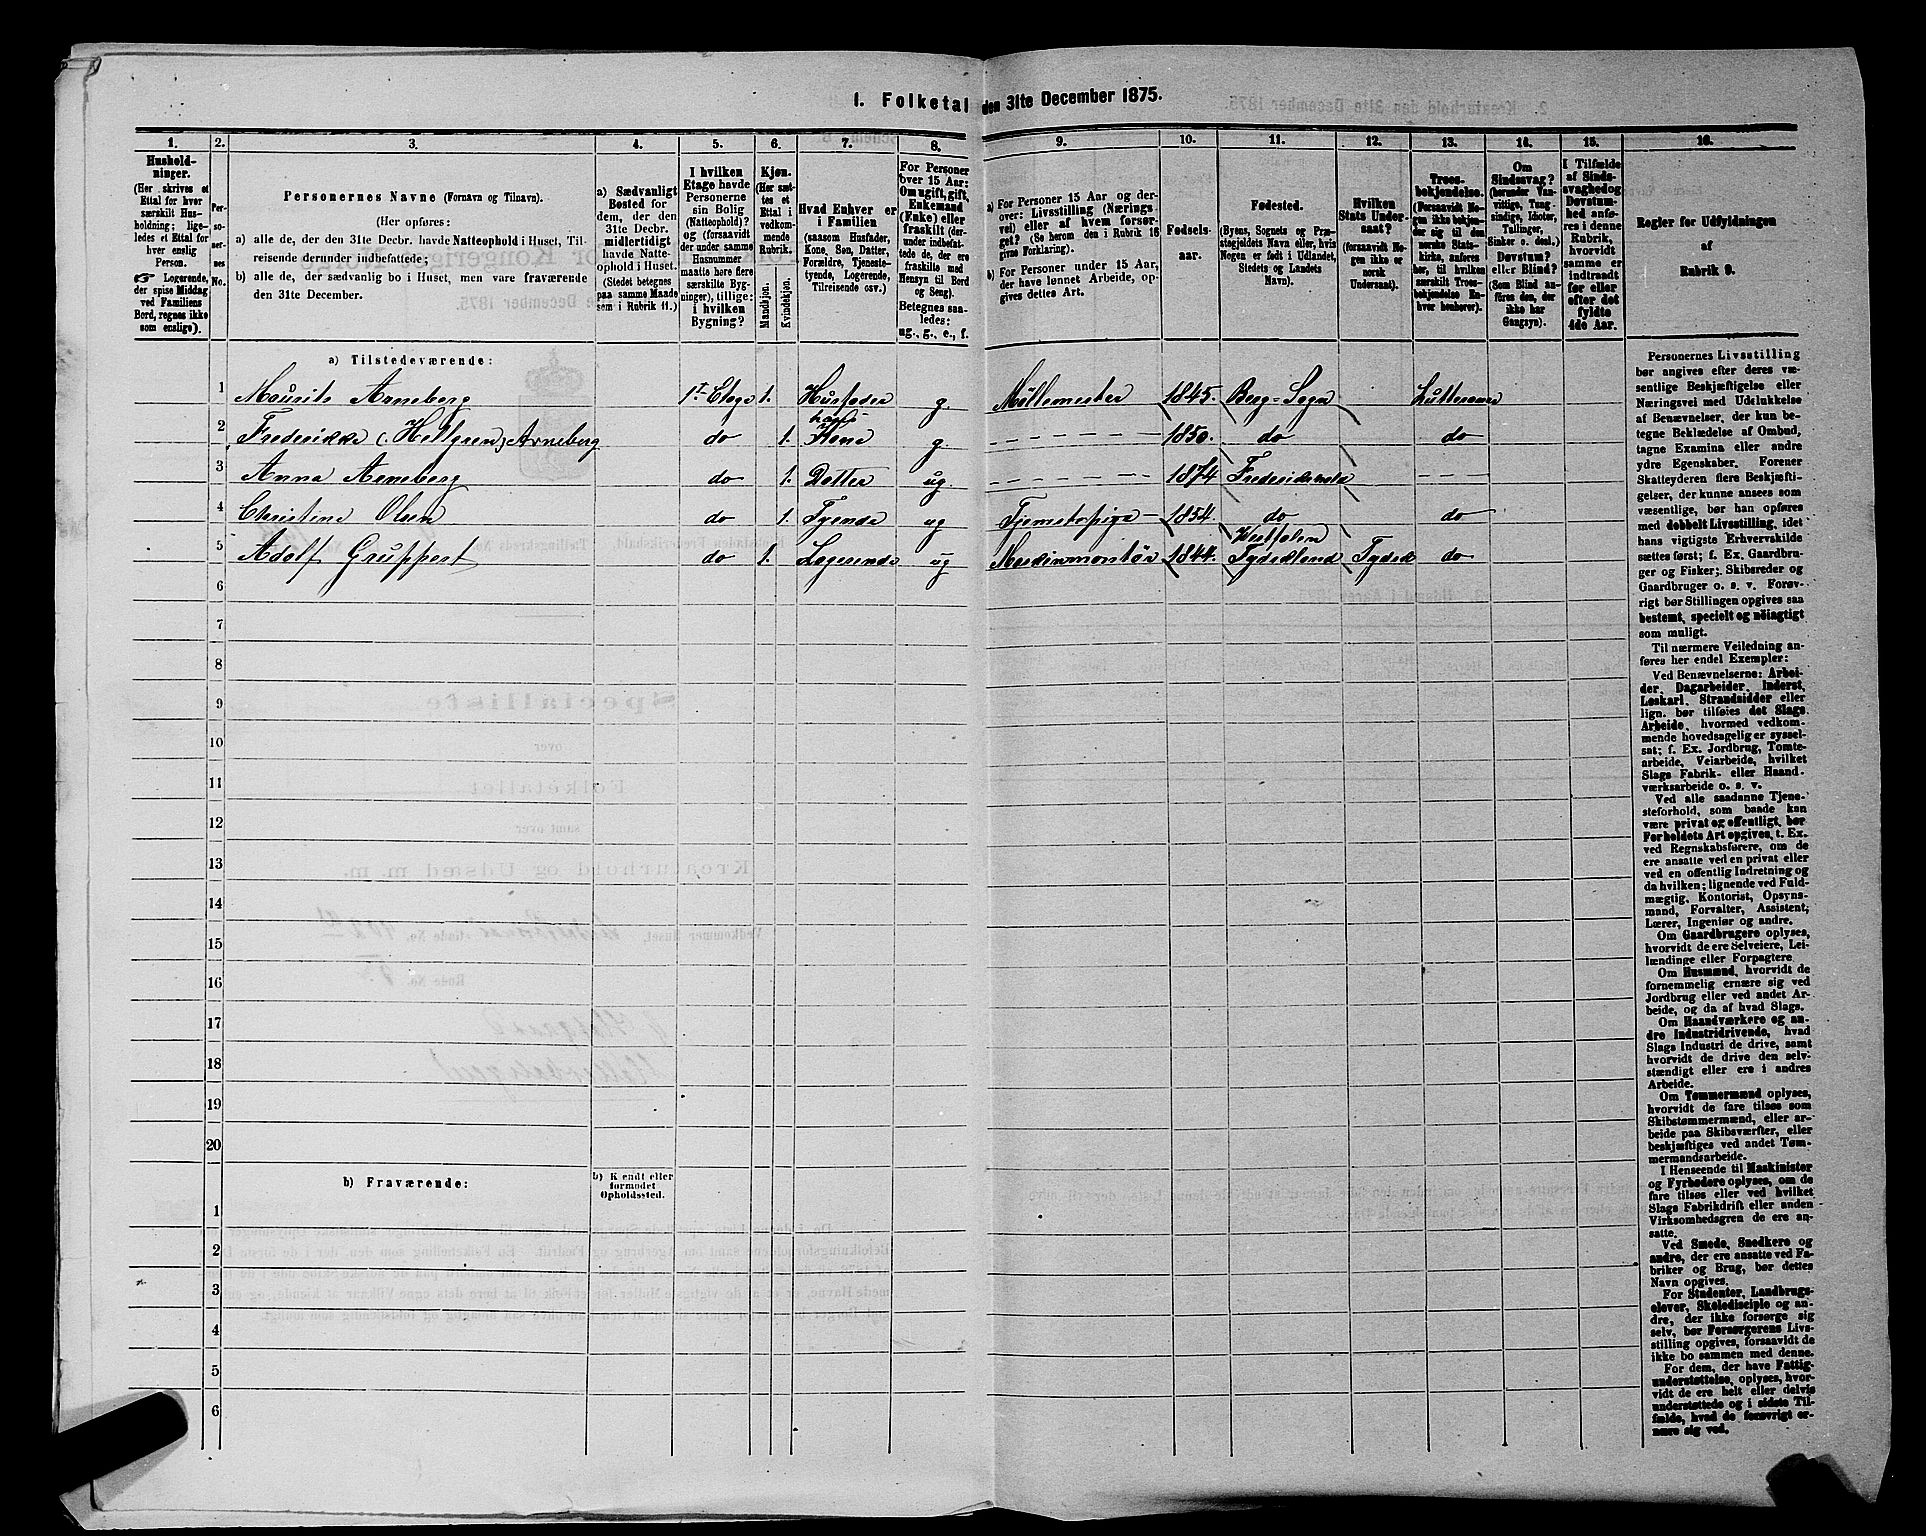 1. Folketal den 31te December 1875.
1. 2. 3. 4. 5. 6. 7. 8. 9. 10. 11. 12. 13. 14. 15. 16.
Hushold-
ninger.
(Her skrives et
Ettal for hver
særskilt Hus-
holdning; lige-
ledes et Ettal for
hver enslig
Person.
☞ Logerende,
der spise Middag
ved Familiens
Bord, regnes ikke
som enslige).
Per-
so-
ner-
nes
No.
Personernes Navne (Fornavn og Tilnavn).
(Her opføres:
a) alle de, der den 31te Decbr. havde Natteophold i Huset, Til-
reisende derunder indbefattede;
b) alle de, der sædvanlig bo i Huset, men vare fraværende
den 31te December.
a) Sædvanligt
Bosted for
dem, der den
31te Decbr.
midlertidigt
havde Natte-
ophold i Huset.
(Stedet betegnes
paa samme Maade
som i Rubrik 11.)
I hvilken
Etage havde
Personerne
sin Bolig
(Natteophold)?
og (forsaavidt
der under samme
Husnummer
maatte høre flere
særskilte Byg-
ninger), tillige:
i hvilken
Bygning?
Kjøn.
(Her sæt-
tes et
Ettal i
vedkom-
mende
Rubrik.
Mandkjøn.
Kvindekjøn.
Hvad Enhver er
i Familien
(saasom Husfader,
Kone, Søn, Datter,
Forældre, Tjeneste-
tyende, Logerende,
Tilreisende osv.)
For Personer
over 15 Aar:
Om ugift, gift,
Enkemand
(Enke) eller
fraskilt (der-
under indbefat-
tede de, der ere
fraskilte med
Hensyn til Bord
og Seng).
Betegnes saa-
ledes:
ug., g., e., f.
a) For Personer 15 Aar og der-
over: Livsstilling (Nærings-
vei) eller af hvem forsør-
get? (Se herom den i Rubrik 16
givne Forklaring).
b) For Personer under 15 Aar,
der have lønnet Arbeide, op-
gives dettes Art.
Fødsels-
aar.
Fødested.
(Byens, Sognets og Præ-
stegjeldets Navn eller, hvis
Nogen er født i Udlandet,
Stedets og Landets
Navn).
Hvilken
Stats Under-
saat?
(forsaavidt No-
gen ikke er
norsk
Undersaat).
Troes-
bekjendelse.
(Forsaavidt No-
gen ikke beken-
der sig til den
norske Stats-
kirke, anføres
her, til hvilken
særskilt Troes-
bekjendelse En-
hver henhører).
Om
Sindssvag?
(herunder Van-
vittige, Tung-
sindige, Idioter,
Tullinger,
Sinker o. desl.)
Døvstum?
eller Blind?
(Som Blind an-
føres den, der
ikke har
Gangsyn).
I Tilfælde
af Sinds-
svaghed og
Døvstum-
hed anfø-
res i denne
Rubrik,
hvorvidt
samme er
indtraadt
før eller
efter det
fyldte
4de Aar.
Regler for Udfyldningen
af
Rubrik 9.
a) Tilstedeværende:
1 Maurits Arneberg 1ste Etage 1. Husfader g. Møllemester 1845. Berg Sogn Lutheraner
2 Frederikke (Hellgren) Arneberg do 1. hans Kone g 1850. do do
3 Anna Arneberg do 1. Datter ug. 1874 Frederikshald
4 Christine Olsen do 1. Tyende ug Tjenestepige 1854. do do
5 Adolf Gruppert do 1. Logerende ug Maskinmontör 1844. Westfalen Tydskland Tydsk do
6
7
8
9
10
11
12
13
14
15
16
17
18
19
20
b) Fraværende:
b) Kjendt eller
formodet
Opholdssted.
1
2
3
4
5
6
Personernes Livsstilling
bør angives efter deres væ-
sentlige Beskjæftigelse eller
Næringsvei med Udelukkelse
af Benævnelser, der kun be-
tegne Beklædelse af Ombud,
tagne Examina eller andre
ydre Egenskaber. Forener
Skatteyderen flere Beskjæfti-
gelser, der kunne ansees som
væsentlige, bør han opføres
med dobbelt Livsstilling, idet
hans vigtigste Erhvervskilde
sættes først; f. Ex. Gaardbru-
ger og Fisker; Skibsreder og
Gaardbruger o. s. v. Forøv-
rigt bør Stillingen opgives saa
bestemt, specielt og nøiagtigt
som muligt.
Til nærmere Veiledning an-
føres her endel Exempler:
Ved Benævnelserne: Arbei-
der, Dagarbeider, Inderst,
Løskarl, Strandsidder eller
lign. bør tilføies det Slags
Arbeide, hvormed vedkom-
mende hovedsagelig er syssel-
sat; f. Ex. Jordbrug, Tomte-
arbeide, Veiarbeide, hvilket
Slags Fabrik- eller Haand-
værksarbeide o. s. v.
Ved alle saadanne Tjene-
steforhold, som baade kan
være privat og offentligt, bør
Forholdets Art opgives, t. Ex.
ved Regnskabsførere, om de
ere ansatte ved en privat eller
ved en offentlig Indretning og
da hvilken; lignende ved Fuld-
mægtig, Kontorist, Opsyns-
mand, Forvalter, Assistent,
Lærer, Ingeniør og andre.
Om Gaardbrugere oplyses,
hvorvidt de ere Selveiere, Lei-
lændinge eller Forpagtere.
Om Husmænd, hvorvidt de
fornemmelig ernære sig ved
Jordbrug eller ved andet Ar-
beide, og da af hvad Slags.
Om Haandværkere og an-
dre Industridrivende, hvad
Slags Industri de drive, samt
hvorvidt de drive den selv-
stændigt eller ere i andres
Arbeide.
Om Tømmermænd oplyses,
hvorvidt de fare tilsøs som
Skibstømmermænd, eller ar-
beide paa Skibsværfter, eller
beskjæftiges ved andet Tøm-
mermandsarbeide.
I Henseende til Maskinister
og Fyrbødere oplyses, om de
fare tilsøs eller ved hvilket
Slags Fabrikdrift eller anden
Virksomhedsgren de ere an-
satte.
Ved Smede, Snedkere og
andre, der ere ansatte ved Fa-
briker og Brug, bør dettes
Navn opgives.
For Studenter, Landbrugs-
elever, Skoledisciple og an-
dre, der ikke forsørge sig
selv, bør Forsørgerens Livs-
stilling opgives, forsaavidt de
ikke bo sammen med denne.
For dem, der have Fattig-
understøttelse, oplyses, hvor-
vidt de ere helt eller delvis
understøttede og i sidste Til-
fælde, hvad de forøvrigt er-
nære sig ved.